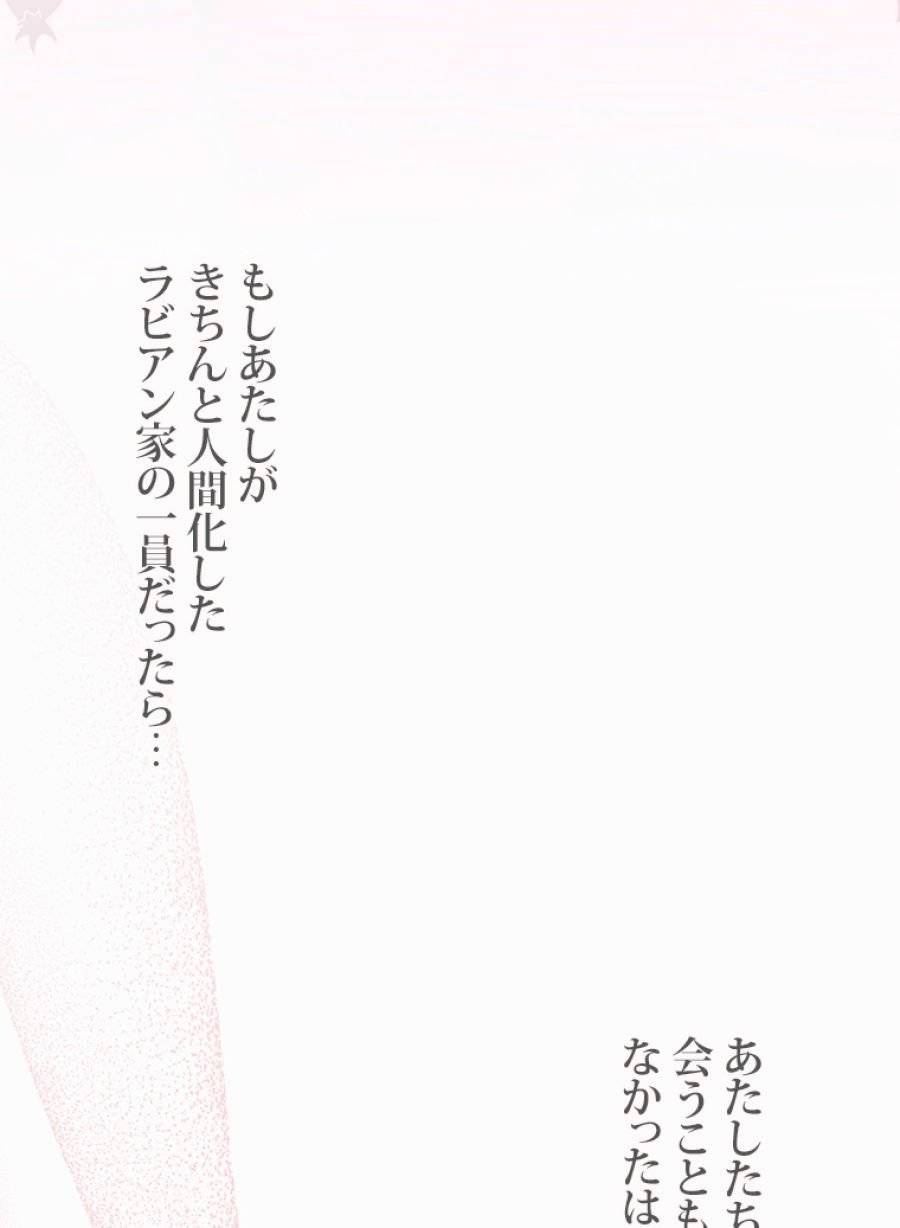 もしあたしが
きちんと人間化した
ラビアン家の一員だったら…
あたしたち
会うことも
なかったは